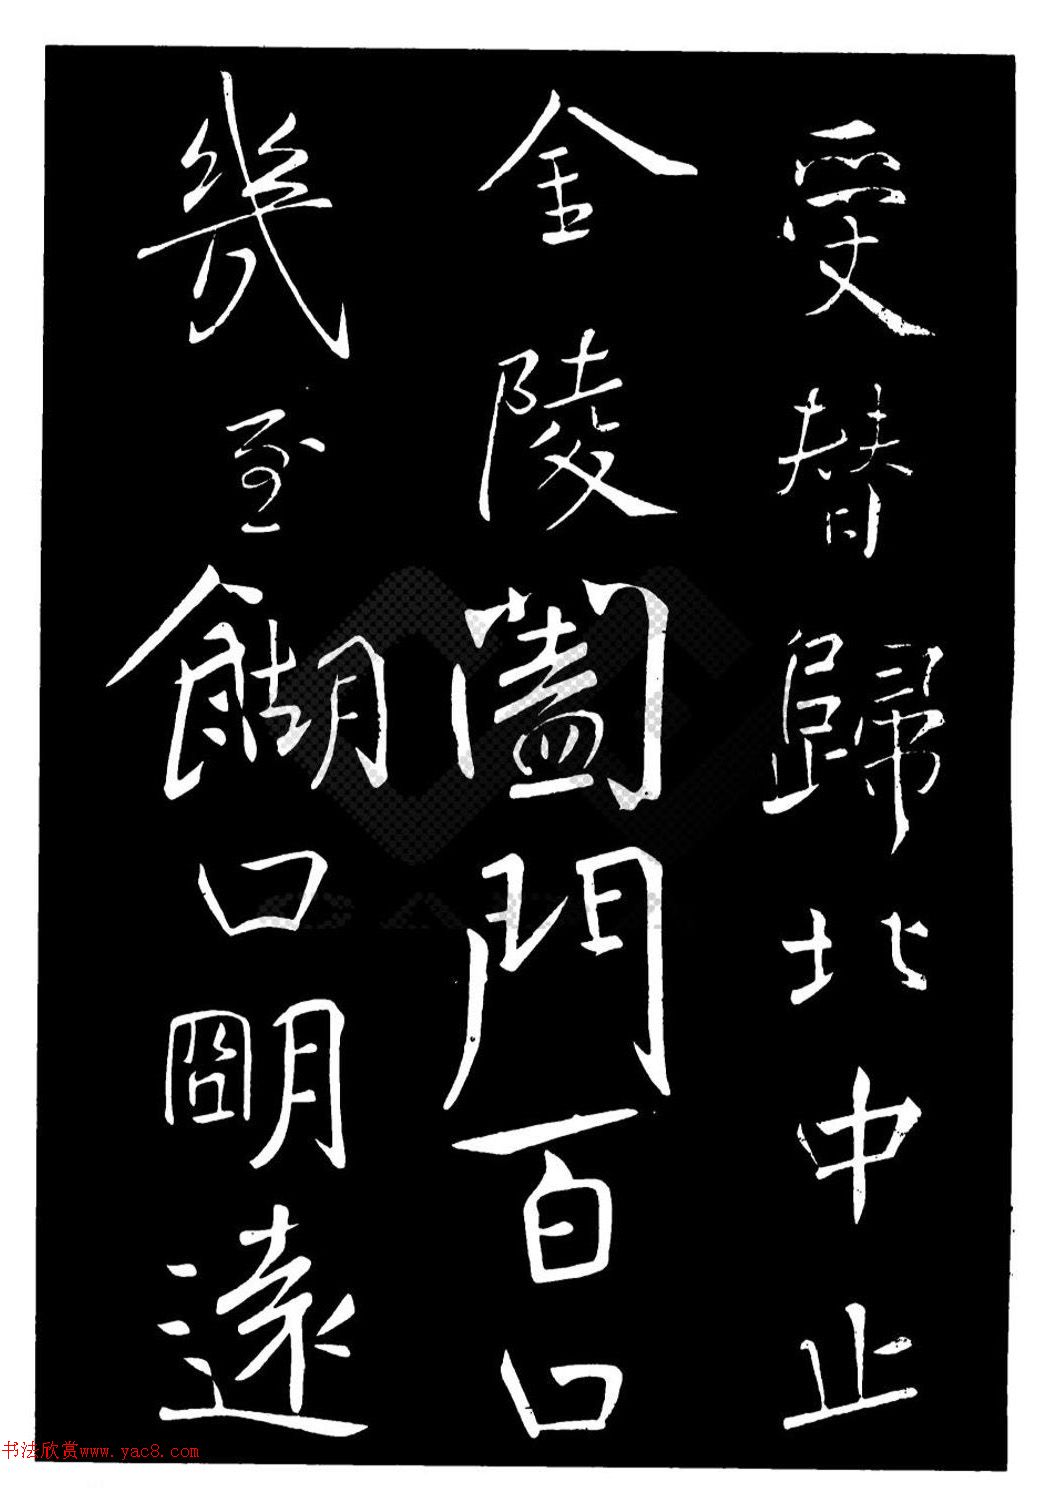 受替歸北中止
金陵闔門百口
幾至餬口朙遠
书法欣赏www.yac8.com